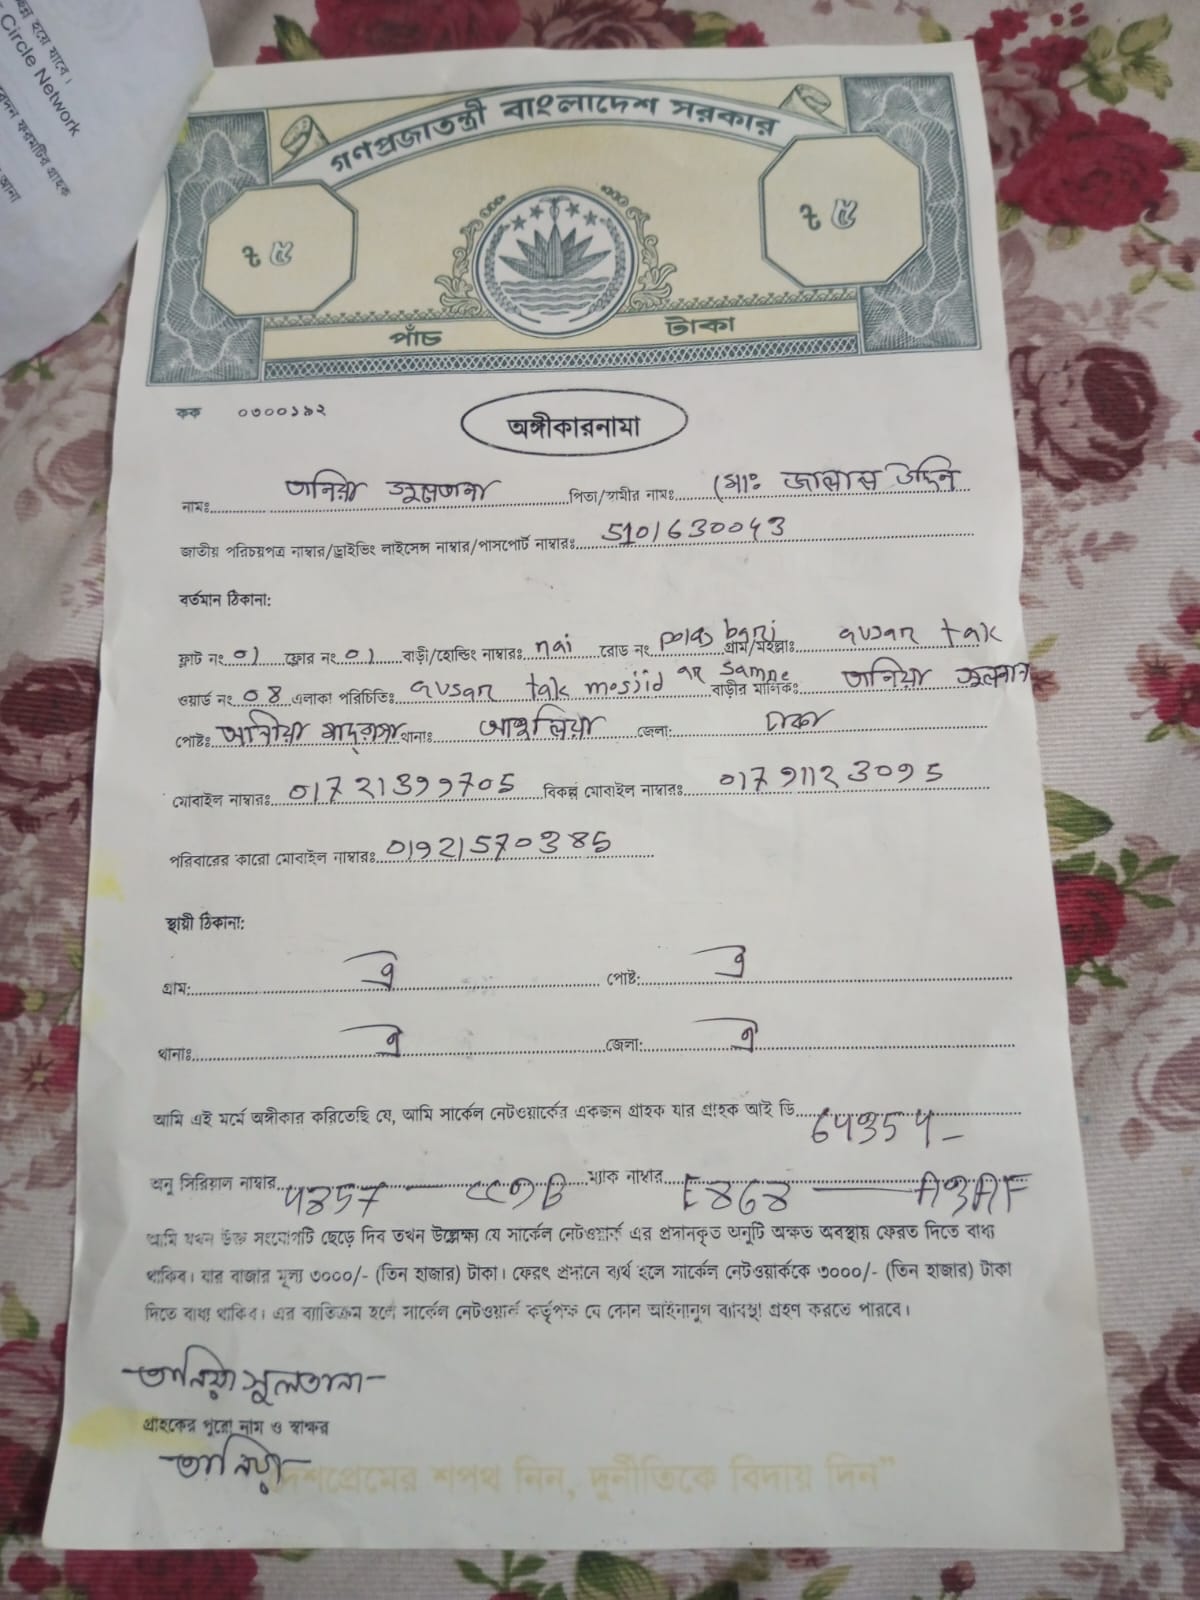 হয়ে যাবে।
Circle Network
ফরমটির গ্রাহক
গণপ্রজাতন্ত্রী বাংলাদেশ সরকার
৳ ৫ ৳ ৫
পাঁচ টাকা
কক ০৩০০১৯২
অঙ্গীকারনামা
নামঃ তানিয়া সুলতানা পিতা/স্বামীর নামঃ মোঃ জালাল উদ্দিন
জাতীয় পরিচয়পত্র নাম্বার/ড্রাইভিং লাইসেন্স নাম্বার/পাসপোর্ট নাম্বারঃ 5101630043
বর্তমান ঠিকানা:
ফ্লাট নং 01 ফ্লোর নং 01 বাড়ী/হোল্ডিং নাম্বারঃ nai রোড নং polas bari গ্রাম/মহল্লাঃ gusan tak
ওয়ার্ড নং 08 এলাকা পরিচিতিঃ gusan tak mosjid ar samne বাড়ীর মালিকঃ তানিয়া সুলতানা
পোষ্টঃ আলীয়া মাদ্রাসা থানাঃ আশুলিয়া জেলা: ঢাকা
মোবাইল নাম্বারঃ 01721399705 বিকল্প মোবাইল নাম্বারঃ 01791123095
পরিবারের কারো মোবাইল নাম্বারঃ 01921570385
স্থায়ী ঠিকানা:
গ্রাম: ঐ পোষ্ট: ঐ
থানাঃ ঐ জেলা: ঐ
আমি এই মর্মে অঙ্গীকার করিতেছি যে, আমি সার্কেল নেটওয়ার্কের একজন গ্রাহক যার গ্রাহক আই ডি
অনু সিরিয়াল নাম্বার ম্যাক নাম্বার
আমি যখন উক্ত সংযোগটি ছেড়ে দিব তখন উল্লেখ্য যে সার্কেল নেটওয়ার্ক এর প্রদানকৃত অনুটি অক্ষত অবস্থায় ফেরত দিতে বাধ্য
থাকিব। যার বাজার মূল্য ৩০০০/- (তিন হাজার) টাকা। ফেরৎ প্রদানে ব্যর্থ হলে সার্কেল নেটওয়ার্ককে ৩০০০/- (তিন হাজার) টাকা
দিতে বাধ্য থাকিব। এর ব্যাতিক্রম হলে সার্কেল নেটওয়ার্ক কর্তৃপক্ষ যে কোন আইনানুগ ব্যবস্থা গ্রহণ করতে পারবে।
তানিয়া সুলতানা
গ্রাহকের পুরো নাম ও স্বাক্ষর
তানিয়া
দেশপ্রেমের শপথ নিন, দুর্নীতিকে বিদায় দিন"